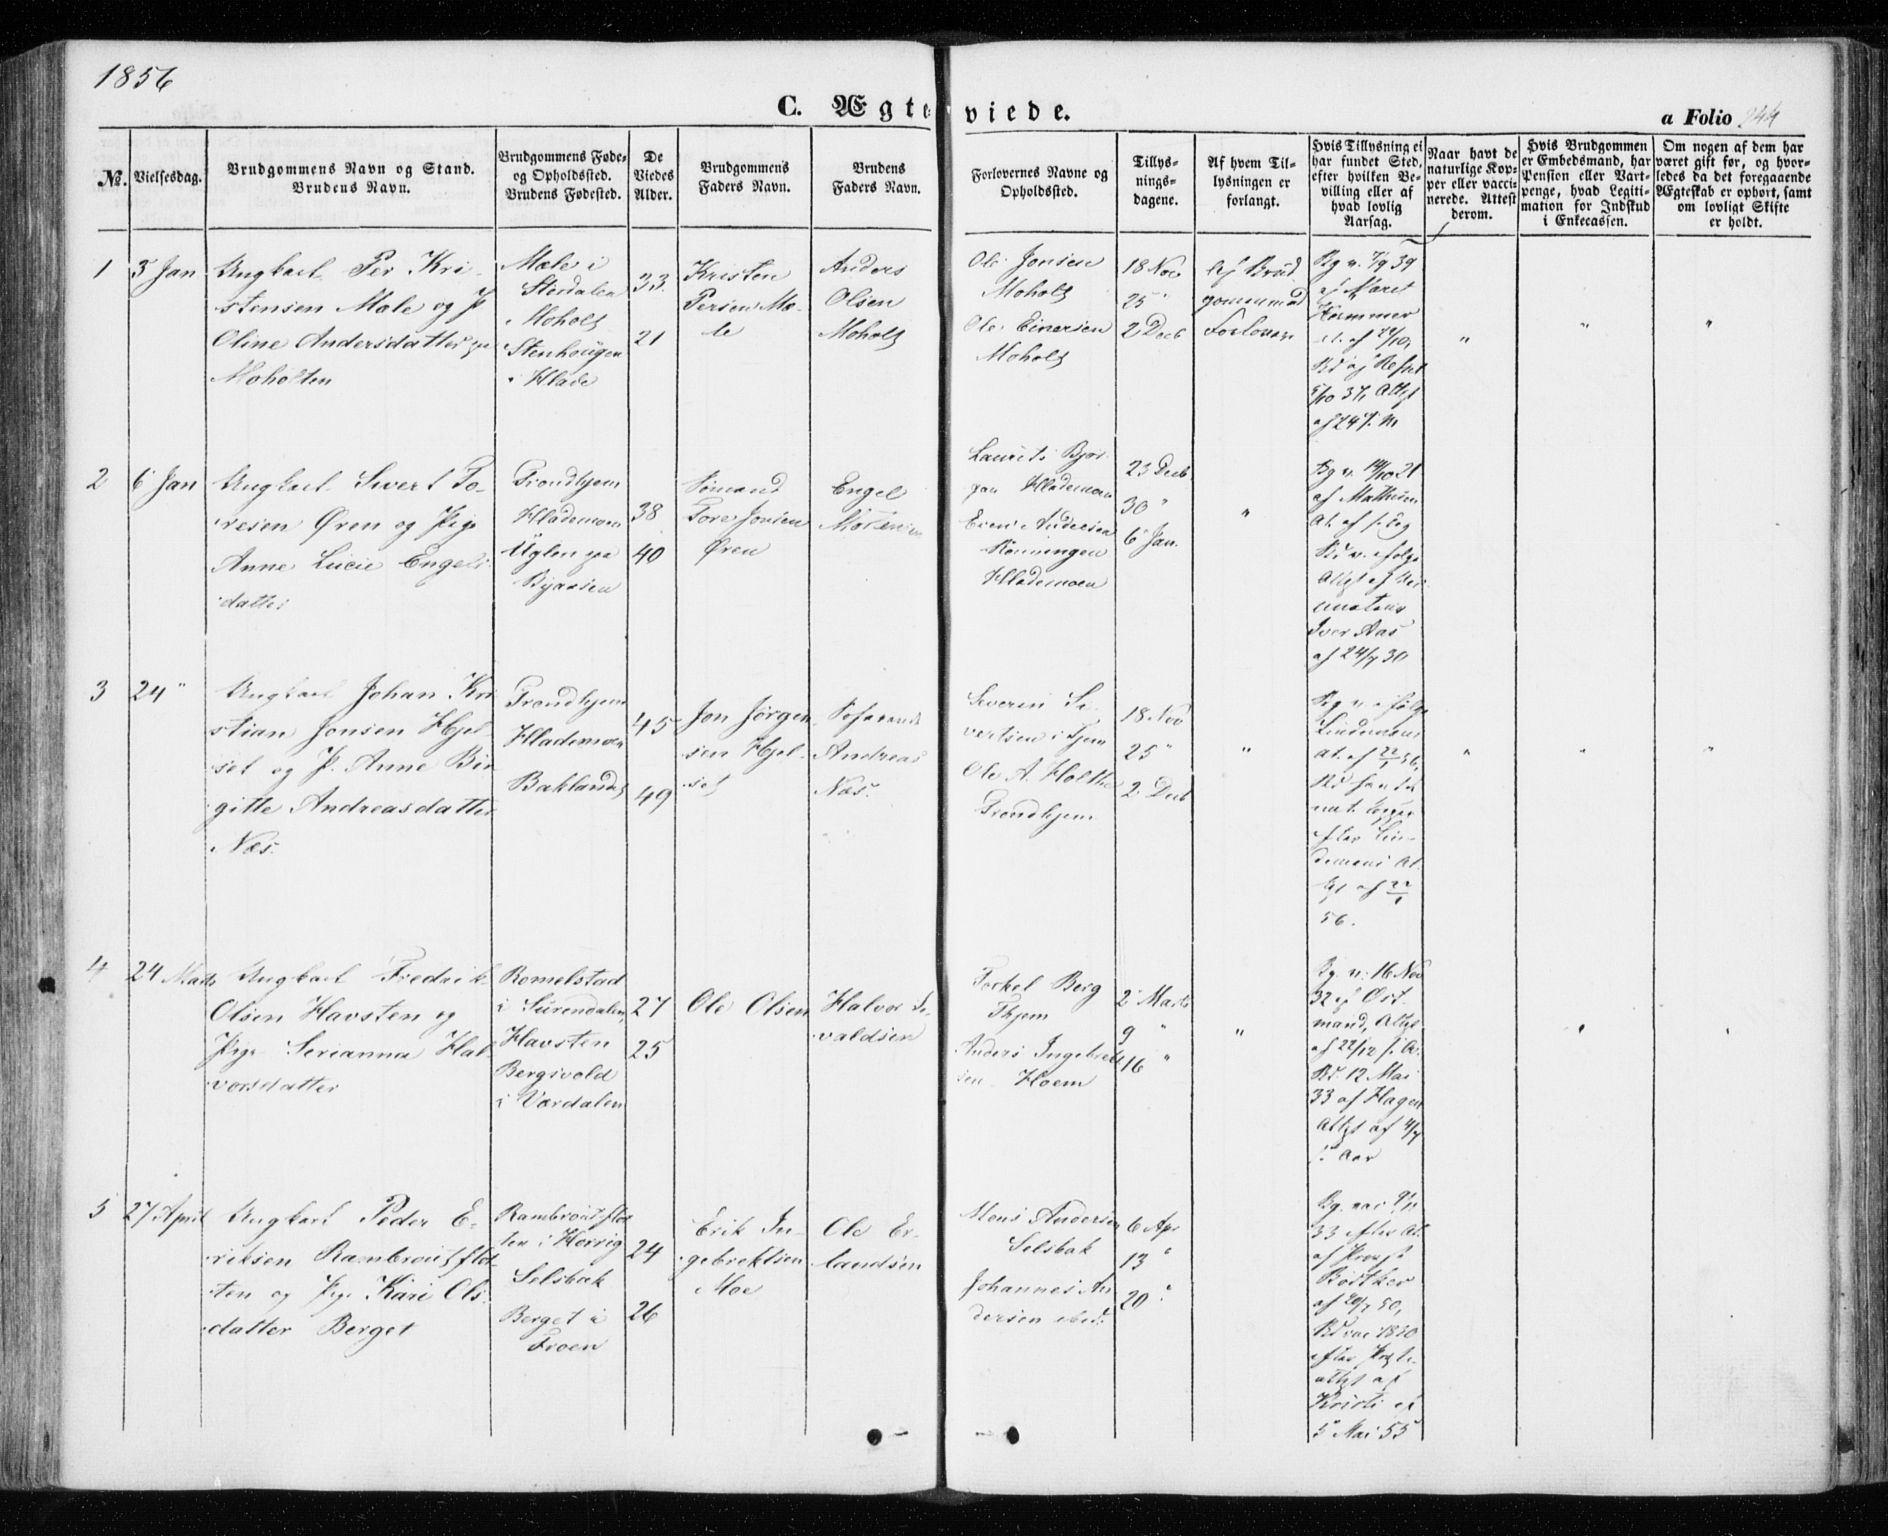 1856
C. Ægteviede.
a Folio 244
No.
Vielsesdag.
Brudgommens Navn og Stand.
Brudens Navn.
Brudgommens Føde-
og Opholdssted.
Brudens Fødested.
De
Viedes
Alder.
Brudgommens
Faders Navn.
Brudens
Faders Navn.
Forlovernes Navne og
Opholdssted.
Tillys-
nings-
dagene.
Af hvem Til-
lysningen er
forlangt.
Hvis Tillysning ei
har fundet Sted,
efter hvilken Be-
villing eller af
hvad lovlig
Aarsag.
Naar havt de
naturlige Kop-
per eller vacci-
nerede. Attest
derom.
Hvis Brudgommen
er Embedsmand, har
Pension eller Vart-
penge, hvad Legiti-
mation for Indskud
i Enkecassen.
Om nogen af dem har
været gift før, og hvor-
ledes da det foregaaende
Ægteskab er ophørt, samt
om lovligt Skifte
er holdt.
1
3 Jan
Ungkarl Per Kri-
stensen Mæle og P.
Oline Andersdatter
Moholten
Mæle i
Størdalen
Moholt
Stenhougen
i Hlade
33
21
Kristen
Persen Mæ-
le
Anders
Olsen
Moholt
Ole Jonsen
Moholt
Ole Einersen
Moholt
18 Nov
25 "
2 Decb
af Brud
gommen
Forlovere
Bg v. 7/9 39
af Maret
Hammer
Bd af
af 24
"
"
"
2
6 Jan
Ungkarl Sivert To-
resen Øren og Pige
Anne Lucie Engels
datter
Trondhjem
Hlademoen
Uglen paa
Byaasen
38
40
Sømand
Tore Jonsen
Øren
Engel
Laurits
Hlademoen
Even Andersen
Rønningen
Hlademoen
23 Decb
30 "
6 Jan.
"
Bg v. 14/10 21
af Mathisen
At. af
Bd v. ifølge
Attest af
Iver Aas
af 24/7 30
3
24 "
Ungkarl Johan Kri
stian Jonsen Hjel-
set og P. Anne Bir
gitte Andreasdatter
Næs.
Trondhjem
Hlademoen
Baklandet
45
49
Jon Jørgen
sen Hjel-
set
Andreas
Næs.
Severin Si-
vertsen i Tjem
Ole A. Holthe
Trondhjem
18 Nov
25 "
2 Decb
"
Bg v. ifølge
Lindemans
At. af 22/1 56,
Bd har
nat. Kopper
efter Lin-
demans At-
test af 22/1
56.
"
"
"
4
24 Marts
Ungkarl Fredrik
Olsen Havsten og
Pige Serianna Hal-
vorsdatter
Romelstad
i Surendalen,
Havsten
Bergsvold
i Værdalen
27
25
Ole Olsen
Halvor Si-
valdsen
Torkel Berg
Thjem
Anders Ingebrikt
sen Hoem
2 Marts
9 "
16 "
"
Bg. v. 16 Nov
32 af Øst-
mand, Attest
af 22/12 f. A.
Bd. 12 Mai
33 af Hagen
Attest af 4/4
f. Aar
5
27 April
Ungkarl Peder E-
riksen Rambroutflot-
ten og Pige Kari Ols-
datter Berget
Rambroutflot
ten i Horrig
Selsbak
Berget i
Froen
24
26
Erik In-
gebrektsen
Moe
Ole Er-
landsen
Mons Andersen
Selsbak
Johannes An
dersen ibid.
6 Apr
13 "
20 "
Bg. vac
33 efter At.
af Provst
Bødtker
af 50,
Bd vac 1830
efter
attest af
5 Mai 55